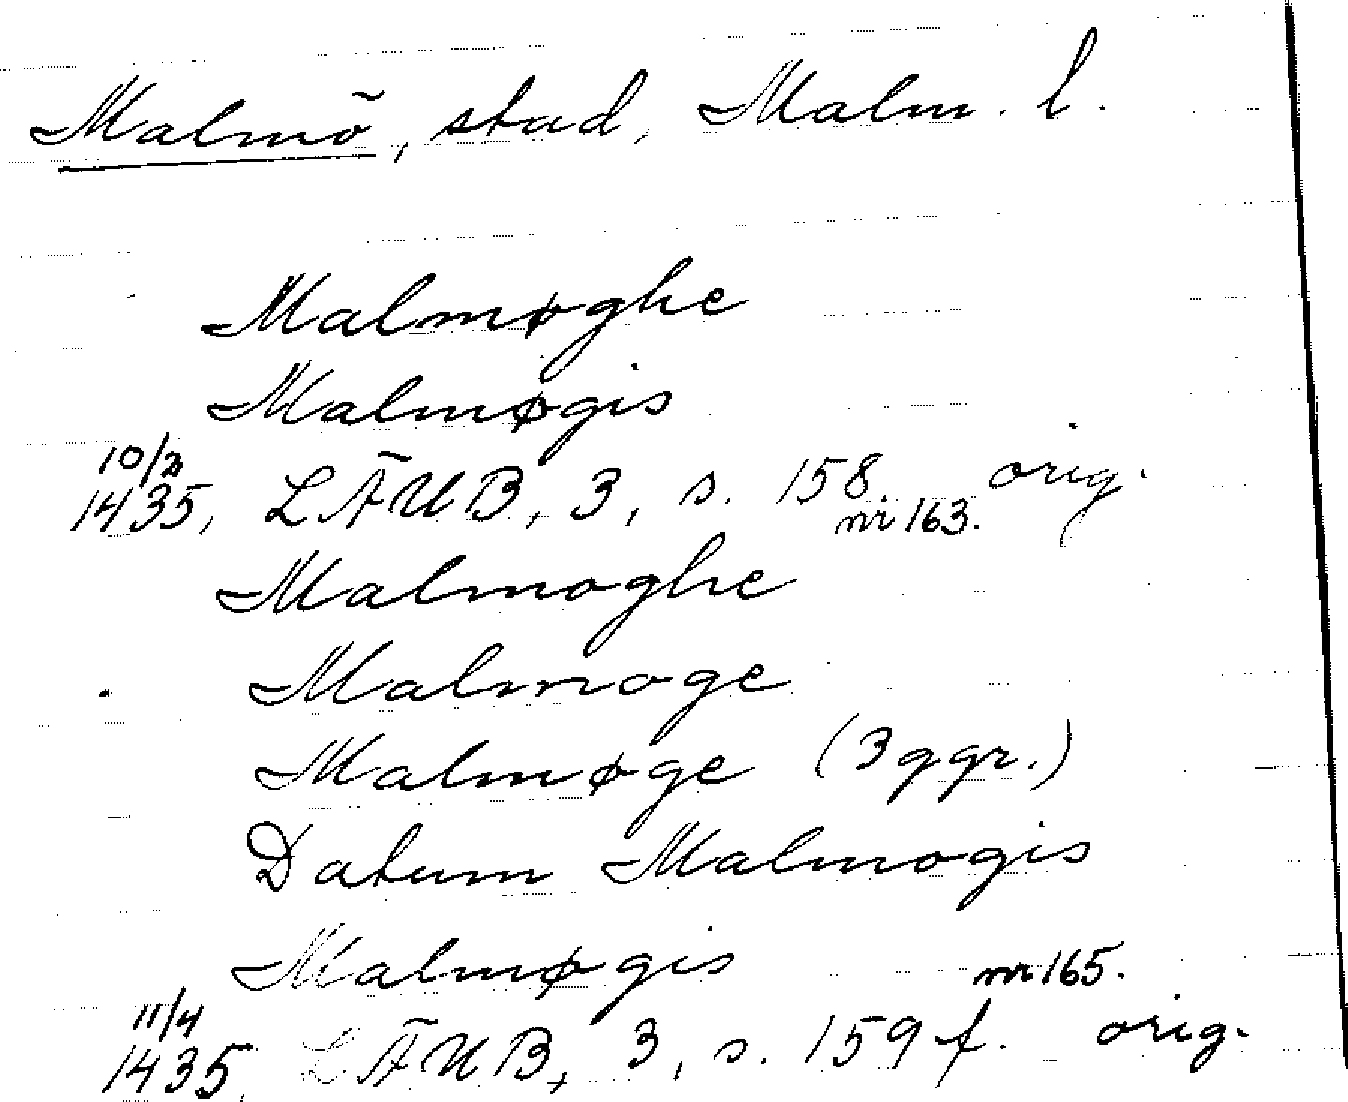 Malmö, stad, Malm. l.
Malmøghe
Malmøgis
10/2 1435, LÄUB, 3, s. 158. nr 163. orig.
Malmoghe
Malmoge
Malmøge (3 ggr.)
Datum Malmogis
Malmøgis nr 165.
11/4 1435, LÄUB, 3, s. 159 f. orig.